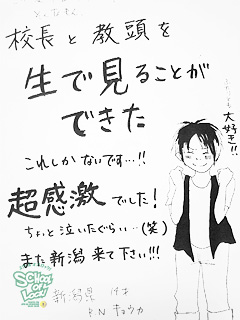 校長と教頭を
生で見ることが
できた
これしかないです…!!
超感激でした!
ちょっと泣いたぐらい…(笑)
また新潟来て下さい!!!
大好き!!
SCHOOL OF LOCK!
新潟県
R.N キョウカ